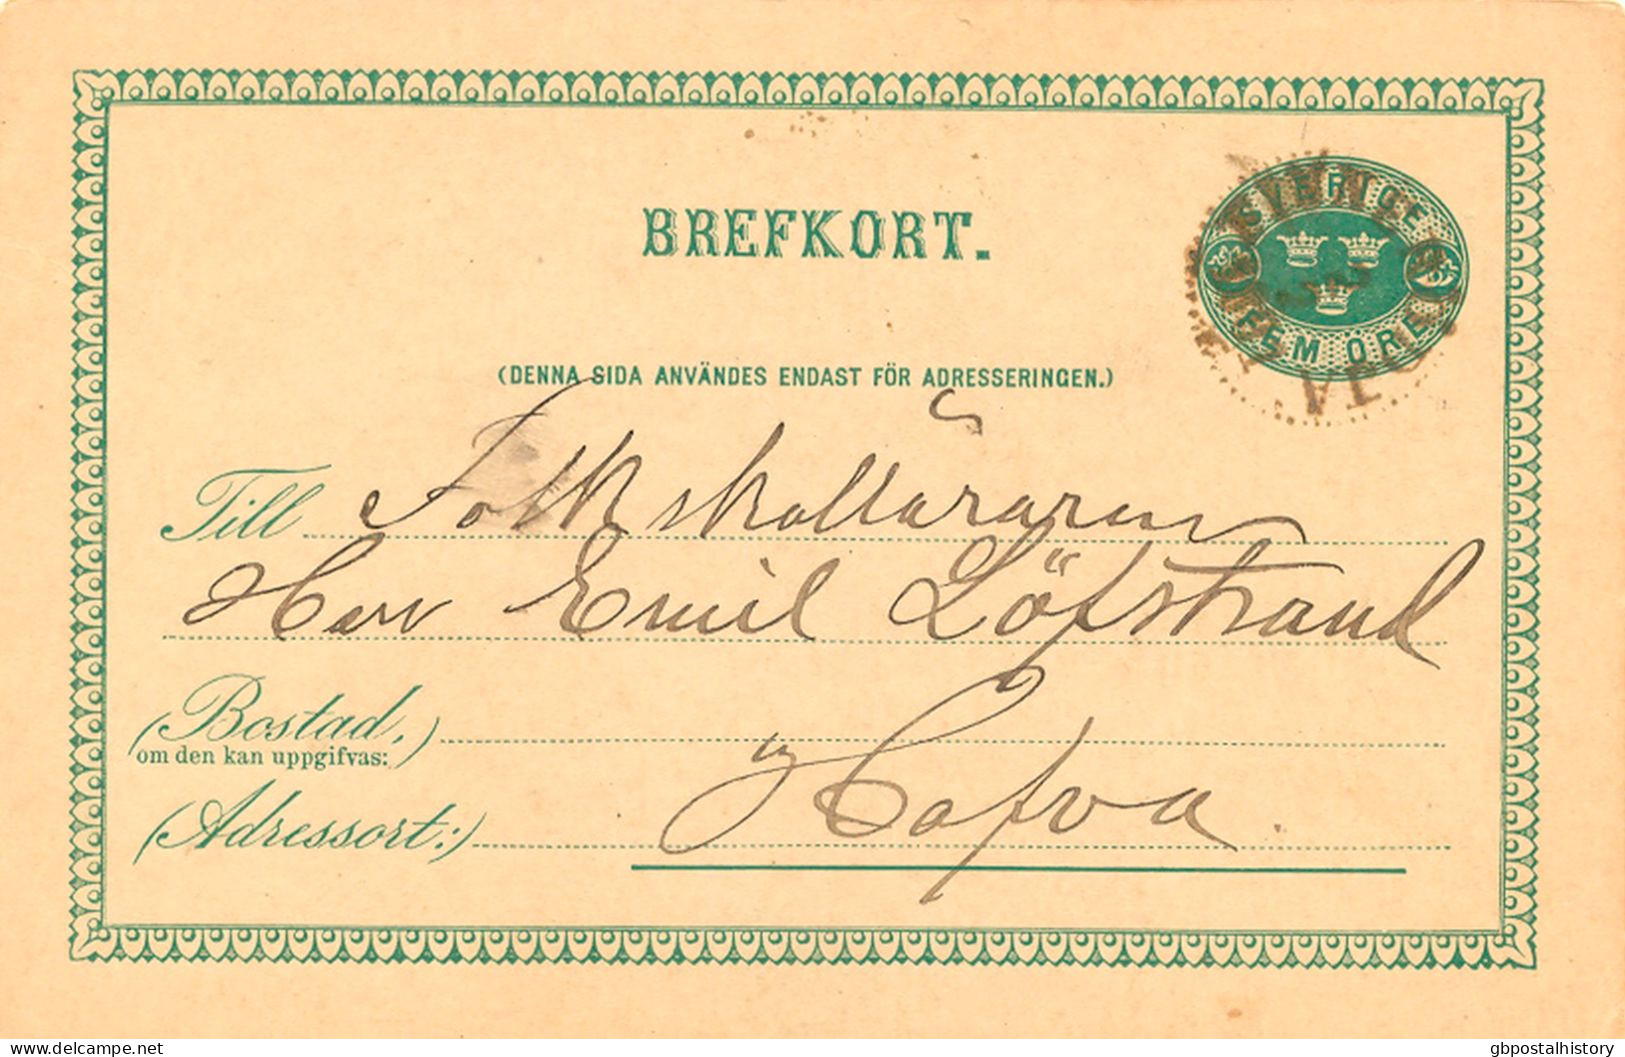 SVERIGE
FEM ÖRE
BREFKORT.
(DENNA SIDA ANVÄNDES ENDAST FÖR ADRESSERINGEN.)
Till Folkskolläraren
Herr Emil Löfstrand
(Bostad,)
om den kan uppgifvas:
(Adressort:) Hofva.
https://www.delcampe.net
gbpostalhistory